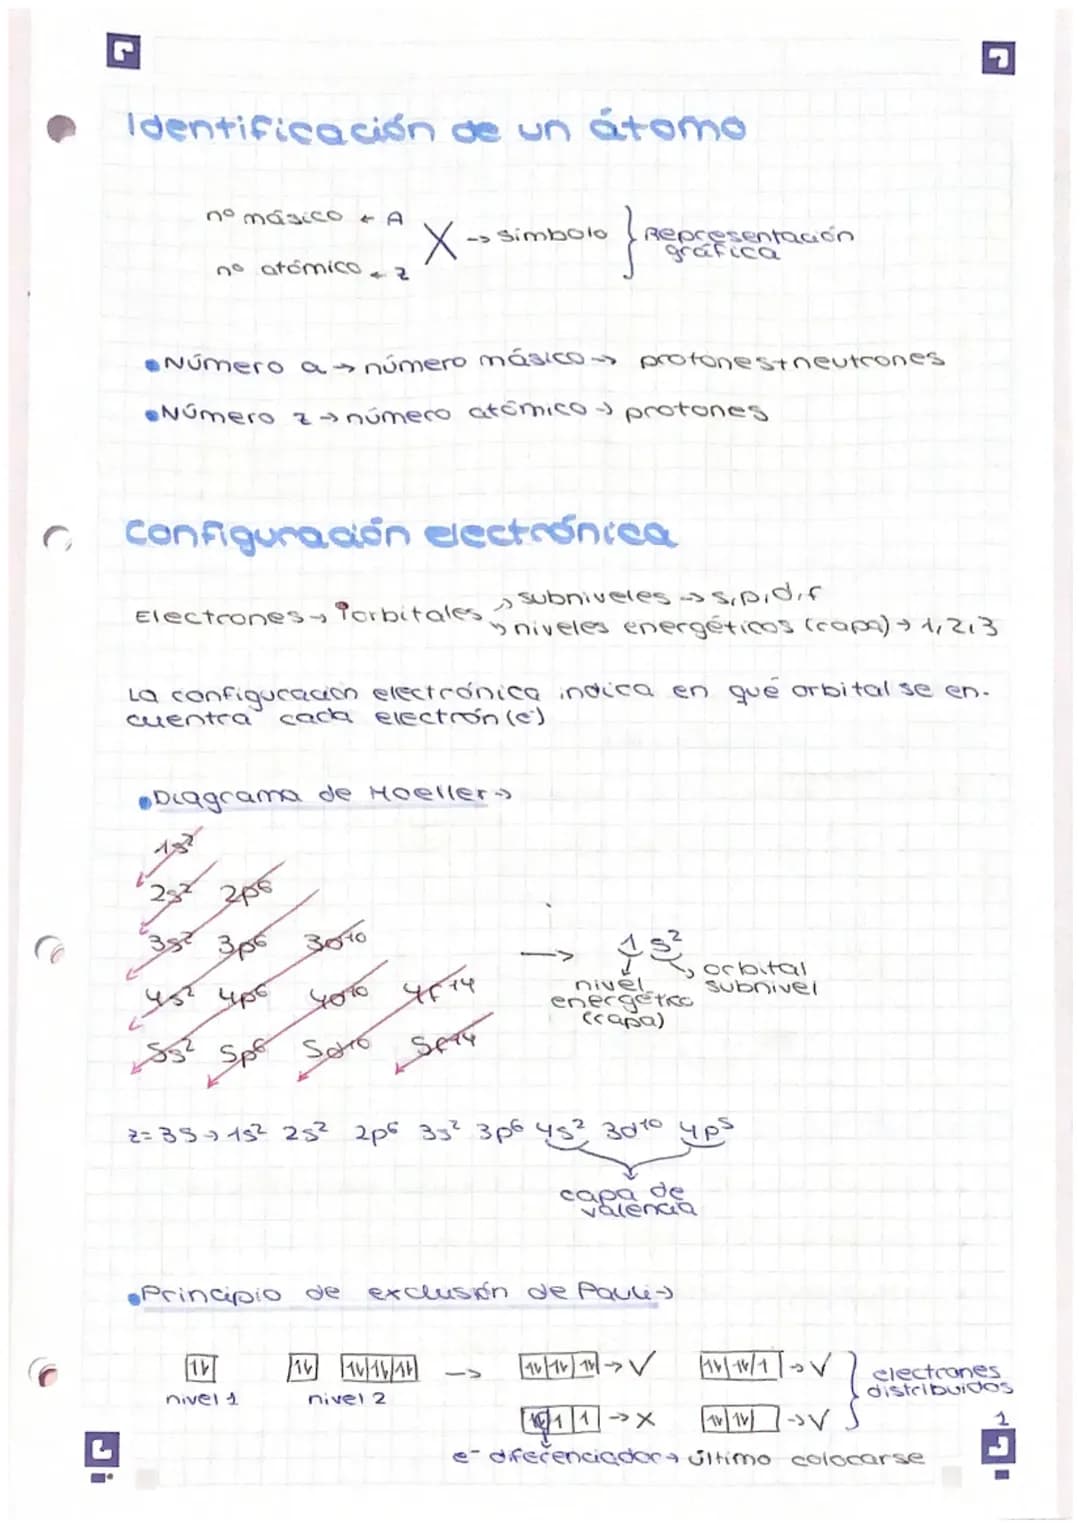 Identificación de un átomo
nº másico ← A
X → símbolo } Representación gráfica
nº atómico ← z
Número a → número másico → protones+neutrones
Número z → número atómico → protones
Configuración electrónica
Electrones → orbitales
subniveles → s,p,d,f
niveles energéticos (capa) → 1,2,3
La configuración electrónica indica en qué orbital se en-
cuentra cada electrón (e⁻)
Diagrama de Moeller →
1s²
2s² 2p⁶
3s² 3p⁶ 3d¹⁰
4s² 4p⁶ 4d¹⁰ 4f¹⁴
5s² 5p⁶ 5d¹⁰ 5f¹⁴
→ 1 s²
nivel energético (capa)
orbital subnivel
z=35 → 1s² 2s² 2p⁶ 3s² 3p⁶ 4s² 3d¹⁰ 4p⁵
capa de
valencia
Principio de exclusión de Pauli →
nivel 1
nivel 2
electrones
distribuidos
e⁻ diferenciador → último colocarse
1